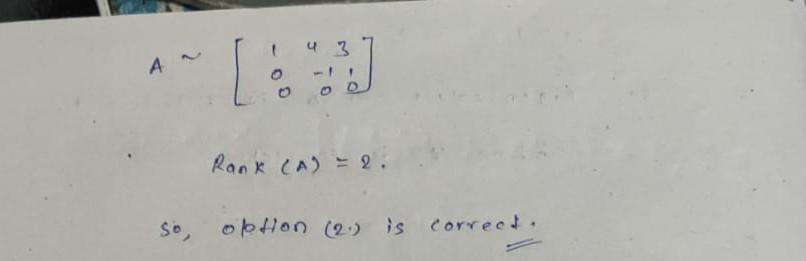 A ~ [ 1 4 3
0 -1 1
0 0 0 ]
Rank (A) = 2.
so, option (2.) is correct.